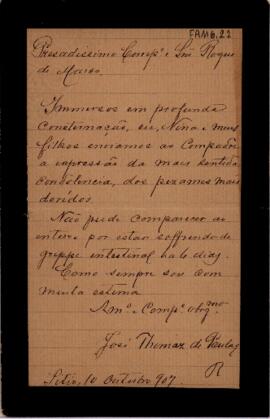 FAM6,22
Presadissimo Comp.e e Snr Roque
de Marco.
Immersos em profunda
consternação, eu, Nina e meus
filhos enviamos ao Compadre
a expressão da mais sentida
condolencia, dos pezames mais
doridos.
Não pude comparecer ao
enterro por estar soffrendo de
grippe intestinal ha 10 dias.
Como sempre sou com
muita estima
Am.o e Comp.e obgmo
José Thomaz de
R
Sitio, 10 Outubro 907.